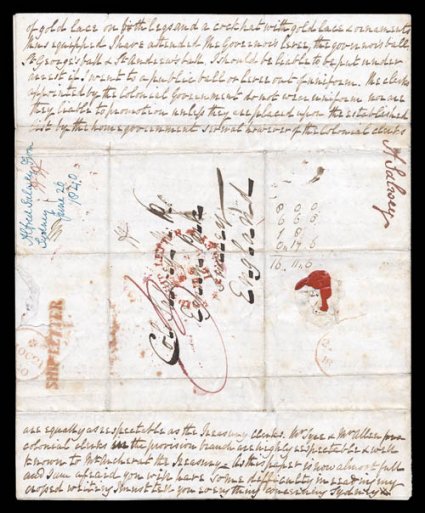 of gold lace on both legs and a cock'd hat with gold lace & ornaments
thus equipped I have attended the Governor's levee, the governor's ball,
St George's ball & St Andrew's ball, I should be liable to be put under
arrest if I went to a public ball or levee out of uniform. The clerks
appointed by the Colonial Government do not wear uniform nor are
they liable to promotion unless they are placed upon the established
list by the home government several however of the Colonial clerks
A Salwey
Alfred Salwey
Sydney
June 26
1840
Colonel
Egham Park
Surrey
England
SHIP LETTER
8 0 0
6 6 8
16 11 6
are equally as respectable as the Treasury clerks. Mr & Mr Allen
colonial clerks in the provision branch are highly respectable & well
known to at the Treasury. As this paper is now almost full
and I am afraid you will have some difficulty in reading my
crossed writing I must tell you everything concerning Sydney